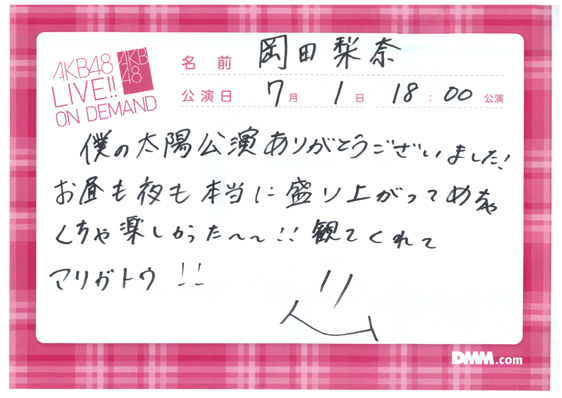 AKB48
LIVE!!
ON DEMAND
AKB
48
名前 岡田梨奈
公演日 7月1日 18:00公演
僕の太陽公演ありがとうございました!
お昼も夜も本当に盛り上がってめちゃ
くちゃ楽しかった〜〜!! 観てくれて
アリガトウ!!
DMM.com